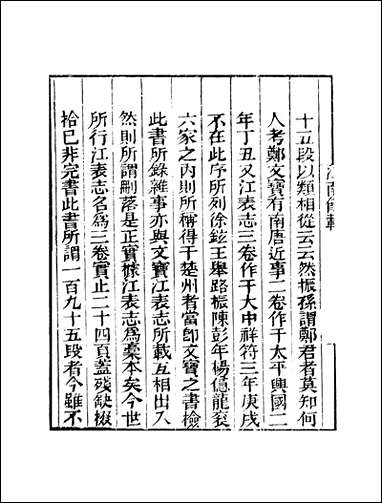 江南餘載
十五段以類相從云云然振孫謂鄭君者莫知何
人考鄭文寶有南唐近事二卷作于太平興國二
年丁丑又江表志三卷作于大中祥符三年庚戌
不在此序所列徐鉉王舉路振陳彭年楊億龍袞
六家之內則所稱得于楚州者當即文寶之書檢
此書所錄雜事亦與文寶江表志所載互相出入
然則所謂刪落是正實據江表志爲藁本矣今世
所行江表志名爲三卷實止二十四頁蓋殘缺掇
拾已非完書此書所謂一百九十五段者今雖不